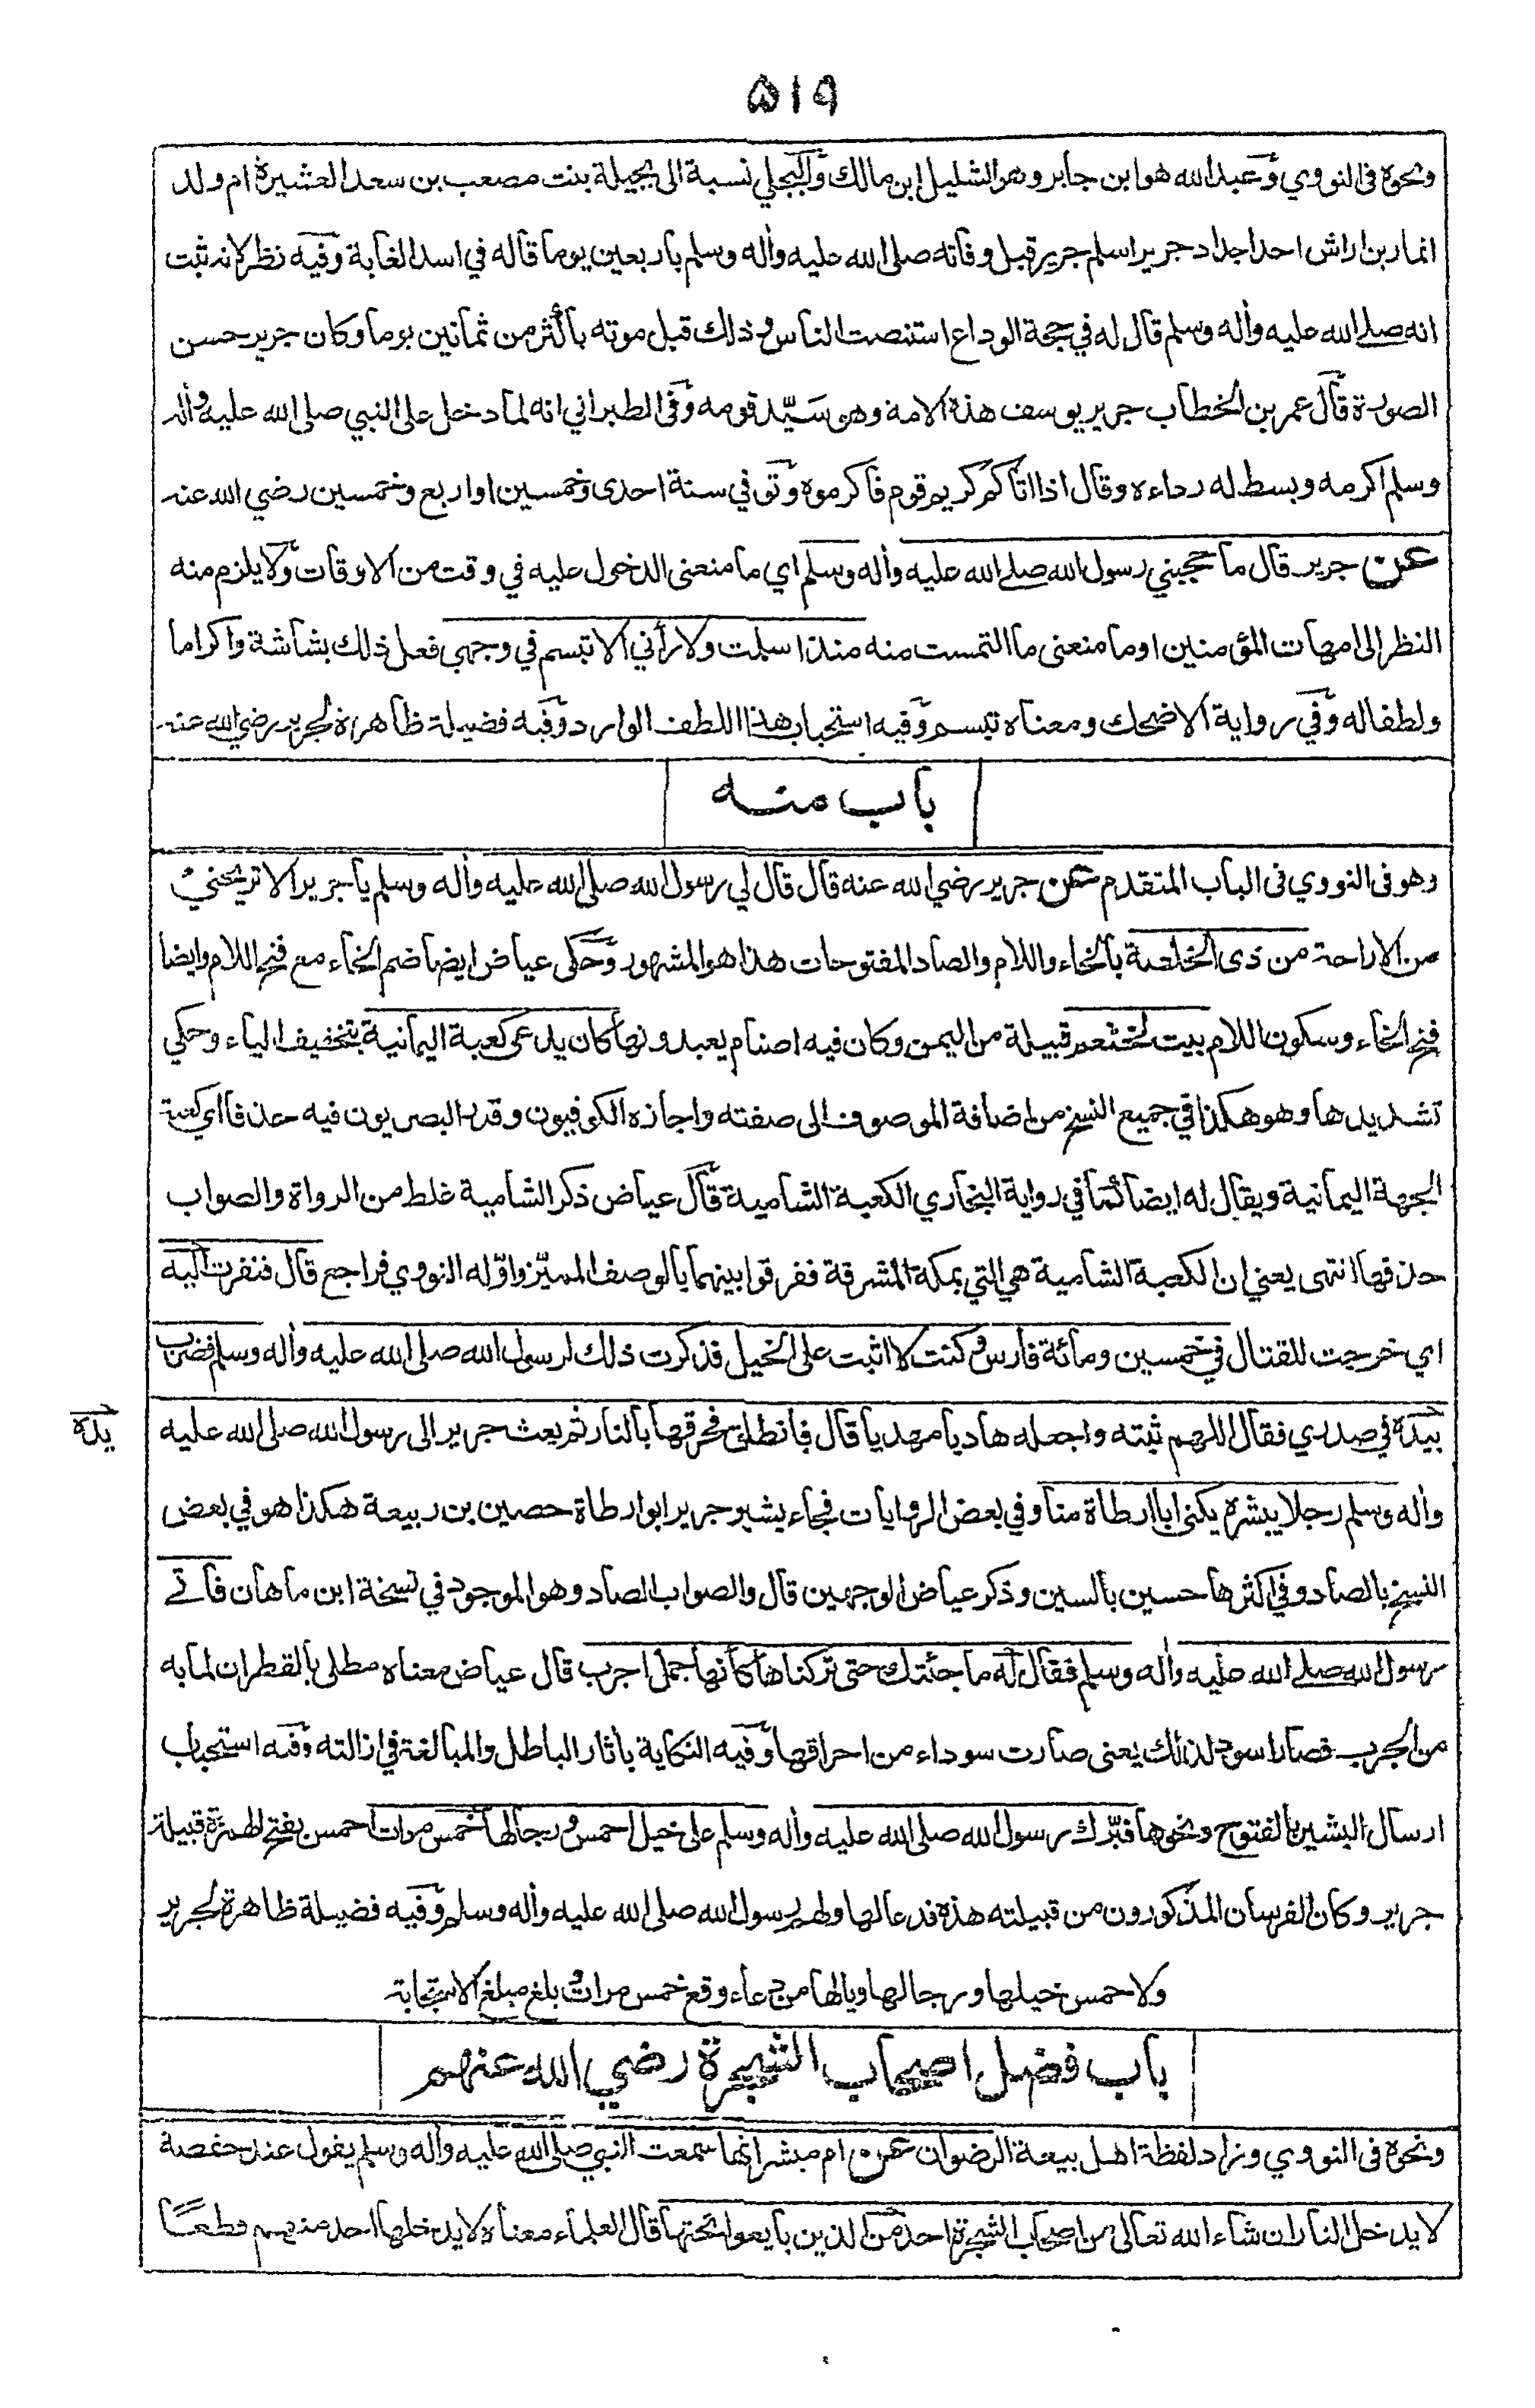 ۵۱۹
ونحوه فى النووي وعبد الله هو ابن جابر وهو الشليل ابن مالك والبجلي نسبة الى بجيلة بنت مصعب بن سعد العشيرة ام ولد
انمار بن اراش احد اجداد جرير اسلم جرير قبل وفاته صلى الله عليه وأله وسلم بأربعين يوما قاله في اسد الغابة وفيه نظر لانه ثبت
انه صلى الله عليه وأله وسلم قال له في حجة الوداع استنصت الناس وذلك قبل موته بأكثر من ثمانين يوما وكان جرير حسن
الصورة قال عمر بن الخطاب جرير يوسف هذه الامة وهو سَيّد قومه وفى الطبراني انه لما دخل على النبي صلى الله عليه وأله
وسلم اكرمه وبسط له رداءه وقال اذا اتأكم كريم قوم فأكرموه وتوفي سنة احدى وخمسين او اربع وخمسين رضي الله عنه
عن جرير قال ما حجبني رسول الله صلى الله عليه وأله وسلم اي ما منعنى الدخول عليه في وقت من الاوقات ولا يلزم منه
النظر الى امهات المؤمنين او ما منعنى ما التمست منه منذ اسلمت ولا رأني الا تبسم في وجهي فعل ذلك بشاشة واكراما
ولطفا له وفي رواية الا ضحك ومعناه تبسم وفيه استحباب هذا اللطف الوارد وفيه فضيلة ظاهرة لجرير رضي الله عنه
باب منه
وهو فى النووي فى الباب المتقدم عن جرير رضي الله عنه قال قال لي رسول الله صلى الله عليه وأله وسلم يا جرير الا تريحني
من الاراحة من ذى الخلصة بالخاء واللام والصاد المفتوحات هذا هو المشهور وحكى عياض ايضا ضم الخاء مع فتح اللام وايضا
فتح الخاء وسكون اللام بيت لخثعم قبيلة من اليمن وكان فيه اصنام يعبدونها كان يدعى كعبة اليمانية بتخفيف الياء وحكي
تشديدها وهو هكذا في جميع النسخ من اضافة الموصوف الى صفته واجازه الكوفيون وقدر البصريون فيه حذفا اي كعبة
الجهة اليمانية ويقال له ايضا كما في رواية البخاري الكعبة الشامية قال عياض ذكر الشامية غلط من الرواة والصواب
حذفها انتهى يعني ان الكعبة الشامية هي التي بمكة المشرفة ففرقوا بينهما بالوصف المميّز واوّله النووي فراجع قال فنفرت اليه
اي خرجت للقتال في خمسين ومائة فارس وكنت لا اثبت على الخيل فذكرت ذلك لرسول الله صلى الله عليه وأله وسلم فضرب
بيده في صدري فقال اللهم ثبته واجعله هاديا مهديا قال فانطلق فحرقها بالنار ثم بعث جرير الى رسول الله صلى الله عليه
يده
وأله وسلم رجلا يبشره يكنى ابا ارطاة منا وفي بعض الروايات فجاء بشير جرير ابو ارطاة حصين بن ربيعة هكذا هو في بعض
النسخ بالصاد وفي اكثرها حسين بالسين وذكر عياض الوجهين قال والصواب الصاد وهو الموجود في نسخة ابن ماهان فأتى
رسول الله صلى الله عليه وأله وسلم فقال له ما جئتك حتى تركناها كأنها جمل اجرب قال عياض معناه مطلي بالقطران لما به
من الجرب فصار اسود لذلك يعنى صارت سوداء من احراقها وفيه النكاية بأثار الباطل والمبالغة في ازالته وفيه استحباب
ارسال البشير بالفتوح ونحوها فبرّك رسول الله صلى الله عليه وأله وسلم على خيل احمس ورجالها خمس مرات احمس بفتح الهمزة قبيلة
جرير وكان الفرسان المذكورون من قبيلته هذه فدعا لها ولهم رسول الله صلى الله عليه وأله وسلم وفيه فضيلة ظاهرة لجرير
ولاحمس خيلها ورجالها ويالها من دعاء وقع خمس مرات وبلغ مبلغ الاستجابة
باب فضل اصحاب الشجرة رضي الله عنهم
ونحوه فى النووي وزاد لفظة اهل بيعة الرضوان عن ام مبشر انها سمعت النبي صلى الله عليه وأله وسلم يقول عند حفصة
لا يدخل النار ان شاء الله تعالى من اصحاب الشجرة احد من الذين بايعوا تحتها قال العلماء معناه لا يدخلها احد منهم قطعًا